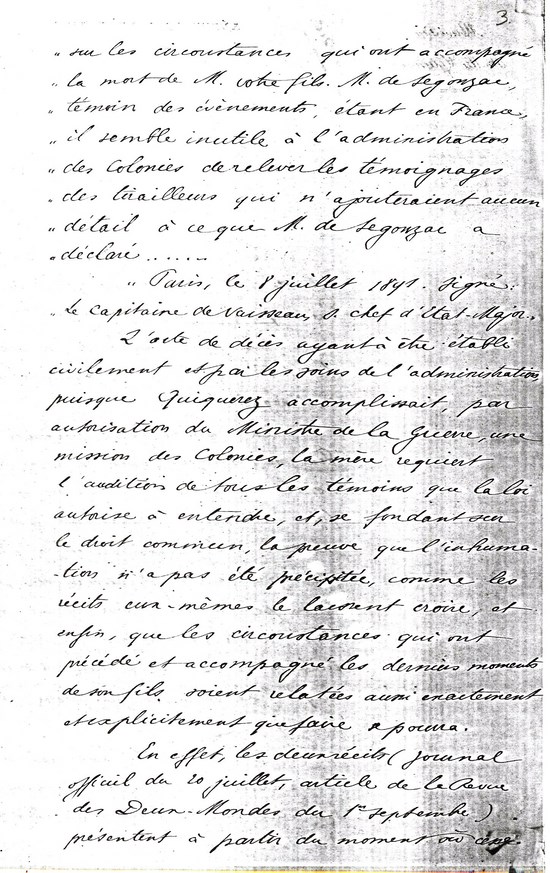 3.
„ sur les circonstances qui ont accompagné
„ la mort de M. votre fils. M. de Segonzac,
„ témoin des évènements, étant en France,
„ il semble inutile à l'administration
„ des Colonies de relever les témoignages
„ des tirailleurs qui n'ajouteraient aucun
„ détail à ce que M. de Segonzac a
„ déclaré .......
„ Paris, le 8 juillet 1891. Signé:
„ Le Capitaine de Vaisseau, S. chef d'Etat-Major.„
L'acte de décès ayant à être établi
civilement et par les soins de l'administration,
puisque Quiquerez accomplissait, par
autorisation du Ministre de la Guerre, une
mission des Colonies, la mère requiert
l'audition de tous les témoins que la loi
autorise à entendre, et, se fondant sur
le droit commun, la preuve que l'inhuma-
-tion n'a pas été précipitée, comme les
récits eux-mêmes le laissent croire, et
enfin, que les circonstances qui ont
précédé et accompagné les derniers moments
de son fils, soient relatées aussi exactement
et explicitement que faire se pourra.
En effet, les deux récits (Journal
officiel du 20 juillet, article de la Revue
des Deux-Mondes du 1er septembre)
présentent à partir du moment où